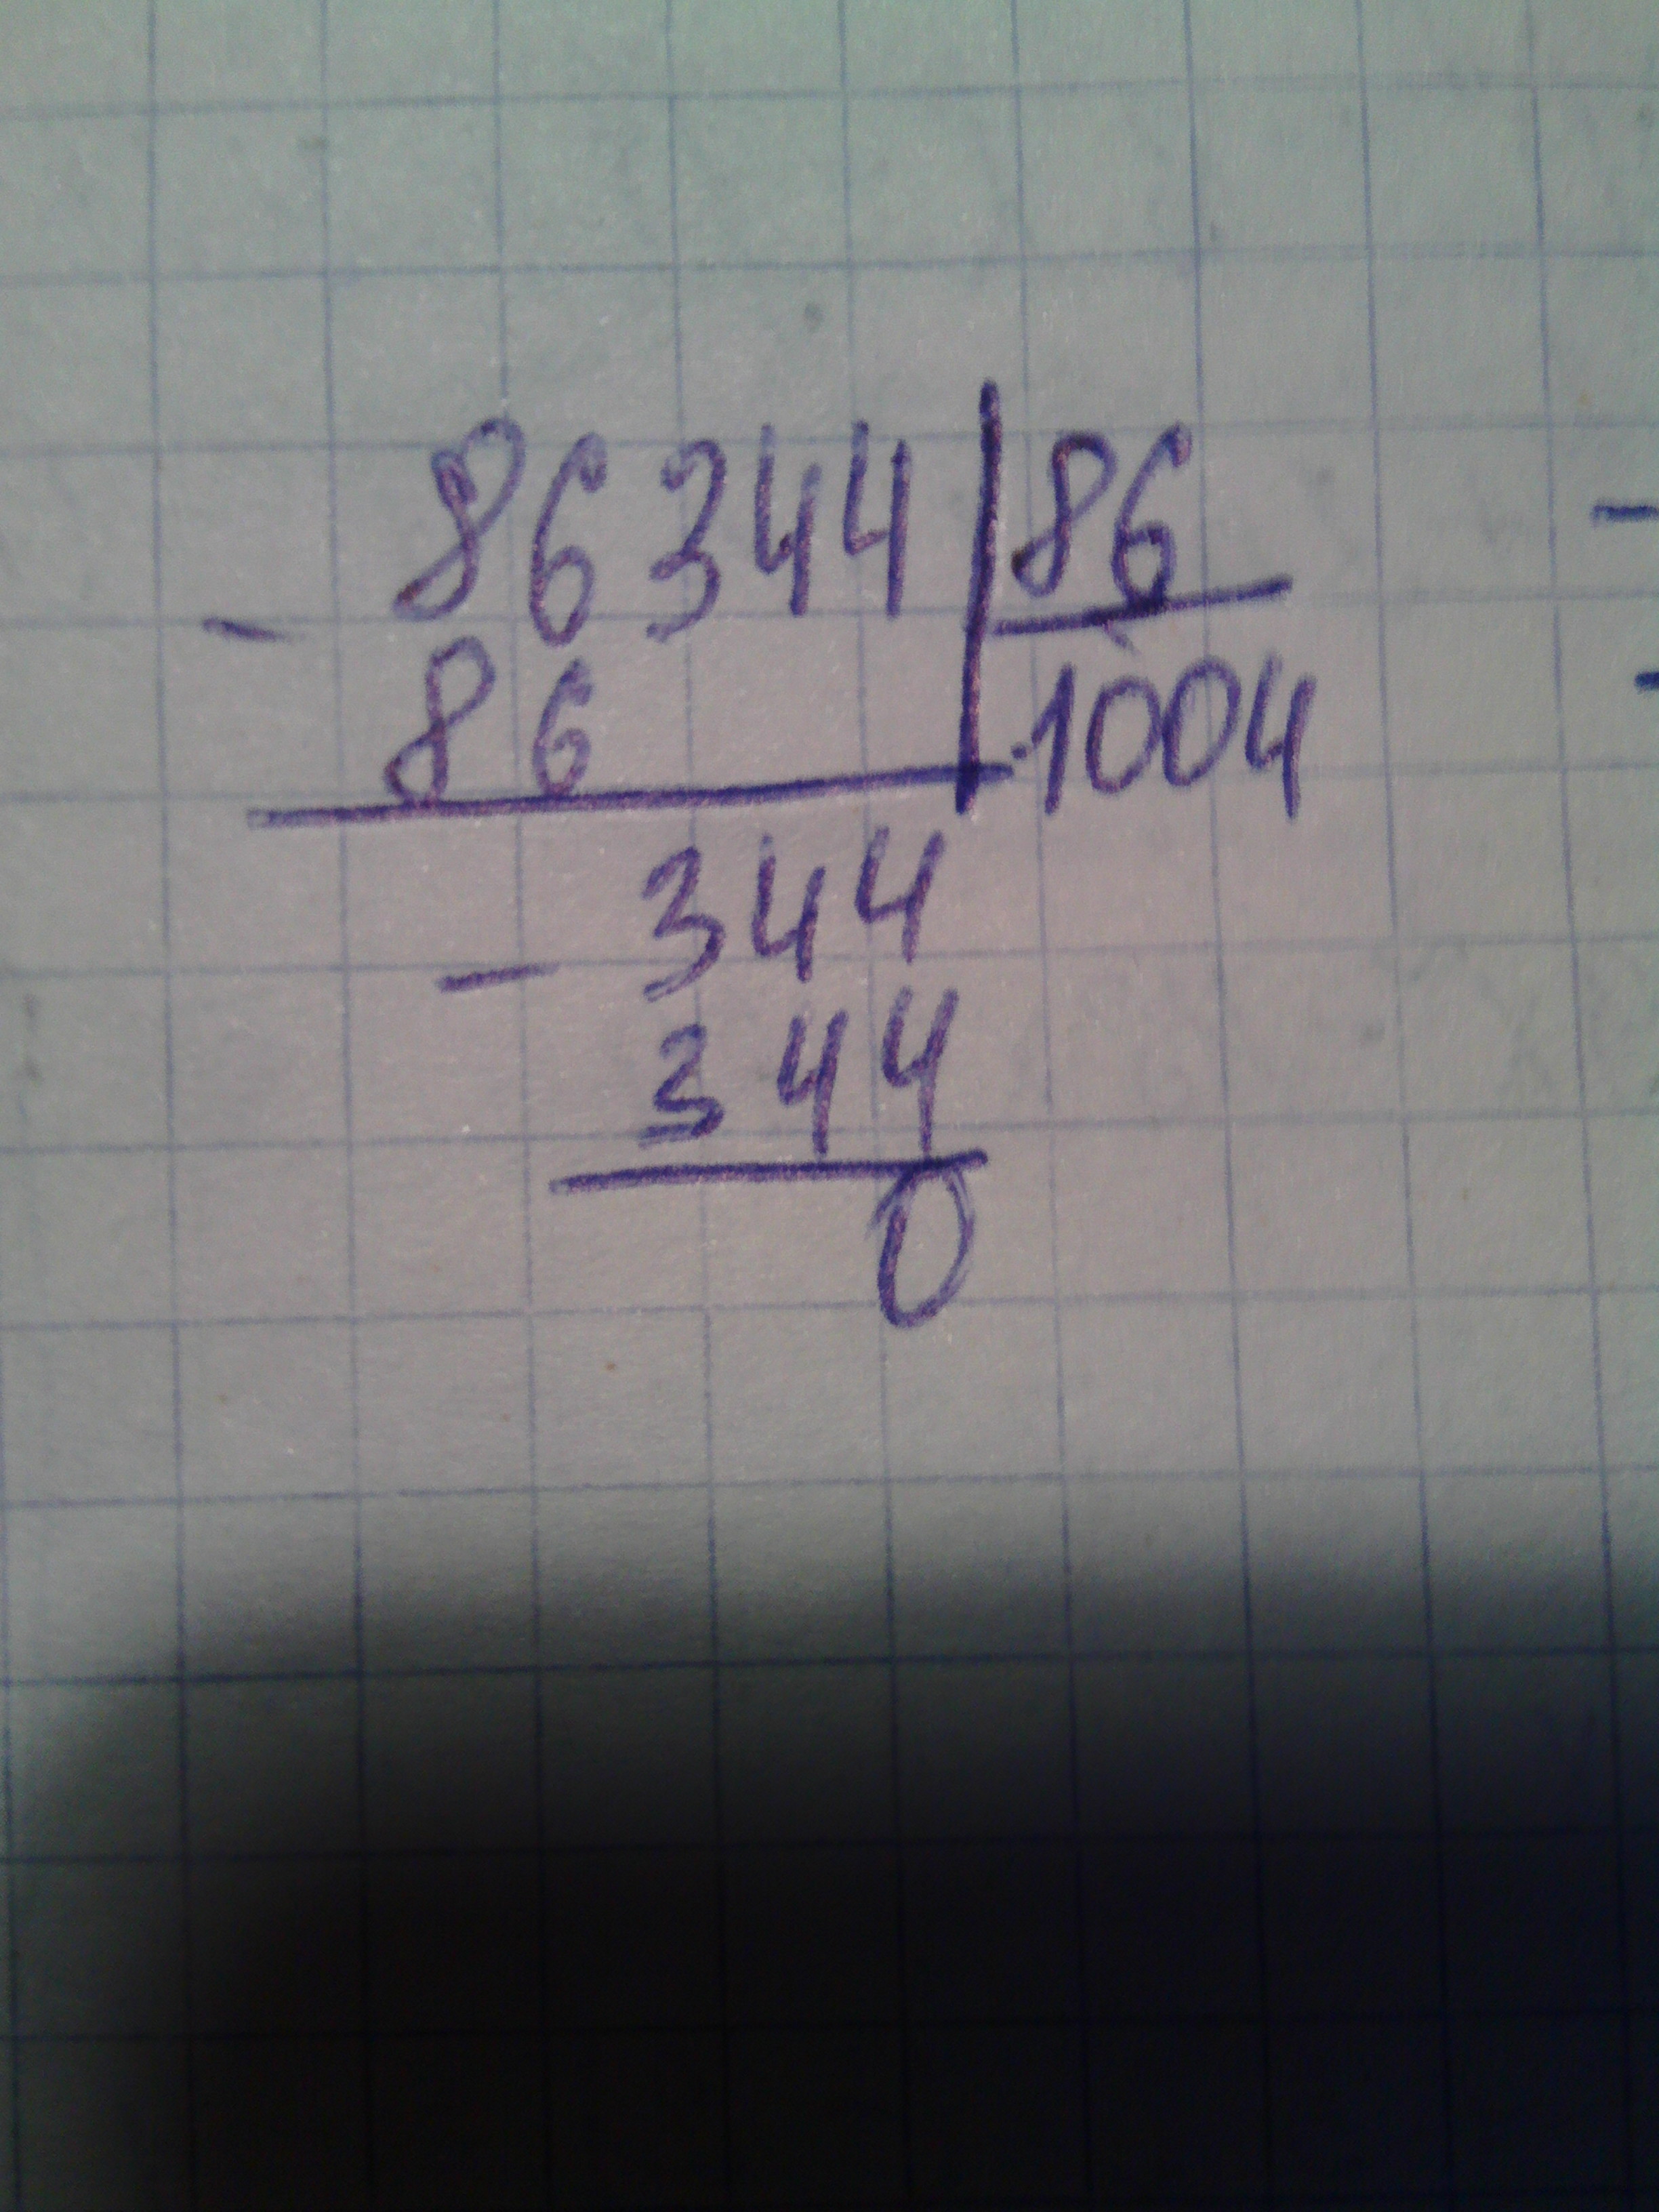 86344 | 86
- 86 1004
344
- 344
0